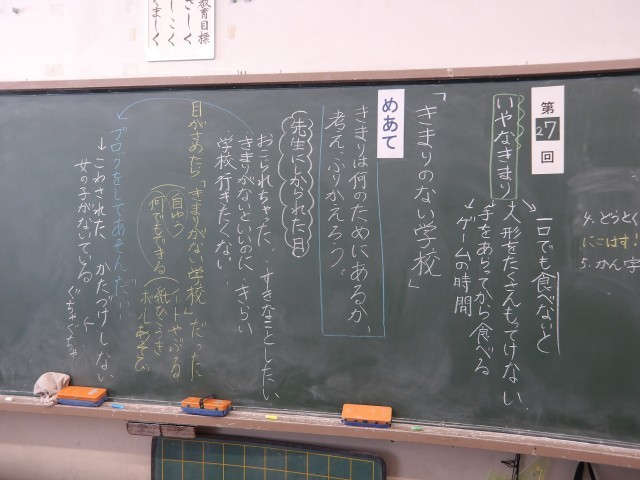 教育目標
さしく
しこく
くましく
第27回
いやなきまり
一口でも食べないと
人形をたくさんもってけない
手をあらってから食べる
ゲームの時間
「きまりのない学校」
めあて
きまりは何のためにあるか、
考え、ふりかえろう。
先生にしかられた日
おこられちゃた、すきなことしたい
きまりがないといいのに きらい
学校行きたくない
目がさめたら「きまりがない学校」だった
自ゆう
何でもできる
ノートやぶる
紙ひこうき
ボールあそび
ブロックをしてあそんだ
こわされた かたづけしない
女の子がないている ぐちゃぐちゃ
4.
にこはす!
5.かん字